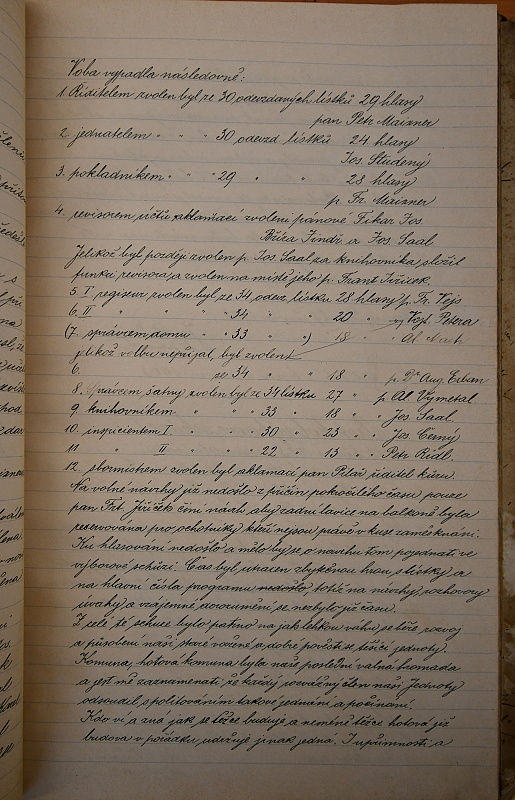 Volba vypadla následovně:
1. Řiditelem zvolen byl ze 30 odevzdaných lístků 29 hlasy
pan Petr Maixner
2. jednatelem " " " 30 odevzd lístků 24 hlasy
Jos. Studený
3. pokladníkem " " " 29 " " 28 hlasy
p. Fr. Maixner
4. revisorem účtů aklamací zvoleni pánové Fikar Jos.
Bříza Jindř. a Jos. Saal
Jelikož byl později zvolen p. Jos. Saal za knihovníka, složil
funkci revisora, a zvolen na místě jeho p. Frant Jiřiček.
5. I regiseur zvolen byl ze 34 odev. lístků 28 hlasy p. Fr. Vejs
6. II " " " 34 " " 20 " Vojt. Petera
(7. správcem domu " " 33 " ") 18 " " Al
jelikož volbu nepřijal, byl zvolen
6. ze 34 " " 18 " p. Dr Aug. Erban
8. Správcem šatny zvolen byl ze 34 lístků 27 " p. Al Vymetal
9. knihovníkem " " " 33 " 18 " " Jos. Saal
10. inspicientem I " " 30 " 23 " " Jos Černý
11 " II " " 22 " 13 " " Petr Ridl.
12. sbormistrem zvolen byl aklamací pan Pilař řiditel kůru.
Na volné návrhy již nedošlo z příčin pokročilého času pouze
pan Frt. Jiřiček činí návrh, aby zadní lavice na balkoně byla
reservována pro ochotníky kteří nejsou právě v kuse zaměstnáni.
Ku hlasování nedošlo a mělo by se o návrhu tom pojednati ve
výborové schůzi. Čas byl utracen zbytečnou hrou s lístky a
na hlavní čísla programu nedošlo, totiž na návrhy, rozhovory
úvahy a vzájemné dorozumění se nezbylo již času.
Z celé té schůze bylo patrno na jak lehkou váhu se běře rozvoj
a působení naší staré vážené a dobré pověsti se těšící jednoty.
Komuna, hotová komuna byla naše poslední valná hromada
a jest mě zaznamenati, že každý rozvážný člen naší Jednoty
odsoudil s politováním takové jednání a počínání.
Kdo ví a zná jak se těžce buduje a neméně těžce hotová již
budova v pořádku udržuje jinak jedná. I upřímnosti a